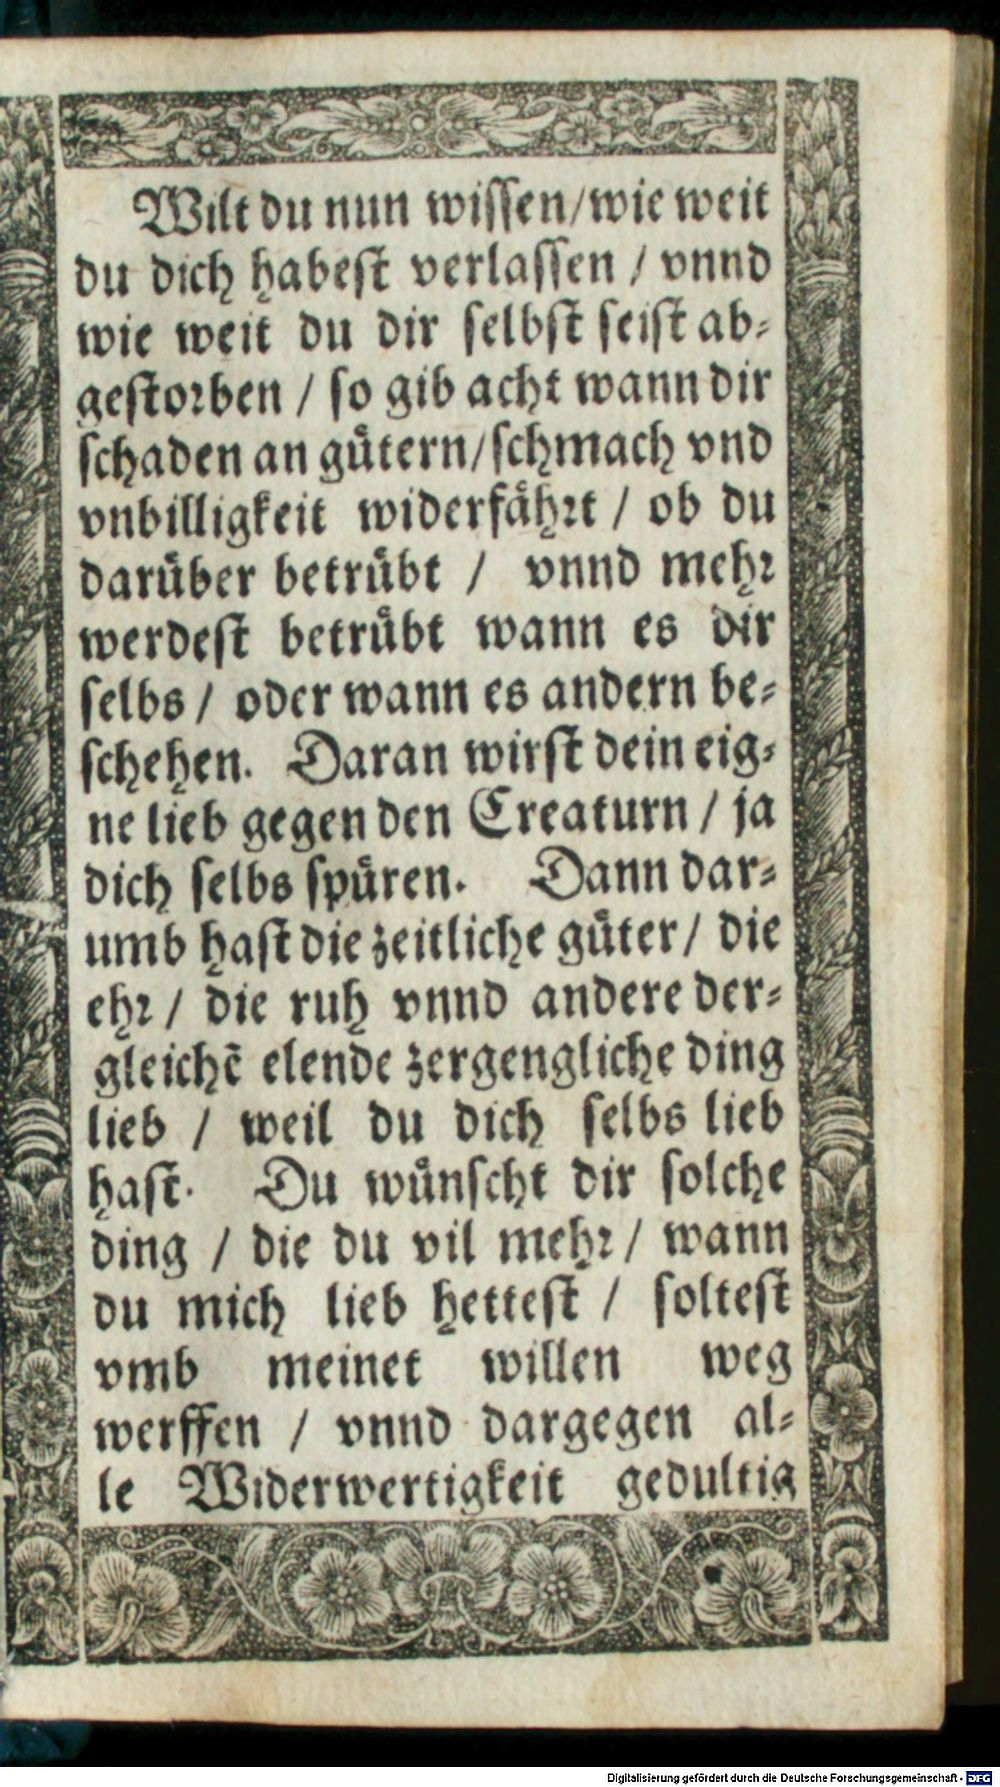 Wilt du nun wiſſen/wie weit
du dich habeſt verlaſſen / vnnd
wie weit du dir ſelbſt ſeiſt ab⸗
geſtorben / ſo gib acht wann dir
ſchaden an guͤtern/ſchmach vnd
vnbilligkeit widerfaͤhrt / ob du
daruͤber betruͤbt / vnnd mehr
werdeſt betruͤbt wann es dir
ſelbs / oder wann es andern be⸗
ſchehen. Daran wirſt dein eig⸗
ne lieb gegen den Creaturn / ja
dich ſelbs ſpuͤren. Dann dar⸗
umb haſt die zeitliche guͤter / die
ehr / die ruh vnnd andere der⸗
gleichẽ elende zergengliche ding
lieb / weil du dich ſelbs lieb
haſt. Du wuͤnſcht dir ſolche
ding / die du vil mehr / wann
du mich lieb hetteſt / ſolteſt
vmb meinet willen weg
werffen / vnnd dargegen al⸗
le Widerwertigkeit gedultig
Digitalisierung gefördert durch die Deutsche Forschungsgemeinschaft - DFG